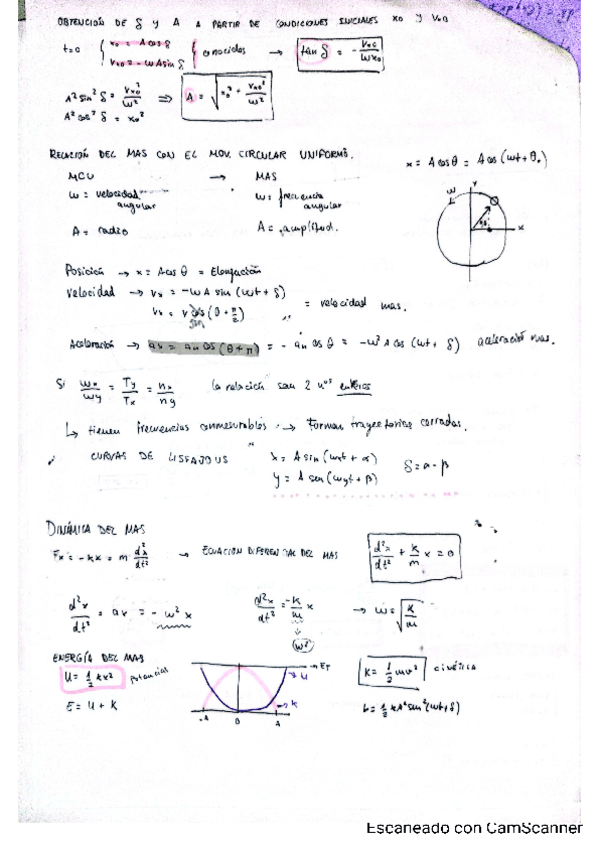 OBTENCIÓN DE δ y A A PARTIR DE CONDICIONES INICIALES x0 y Vx0
t=0 { x0 = A cos δ
Vx0 = -wA sin δ } conocidos → tan δ = - Vx0/wx0
A² sin² δ = Vx0²/w² ⇒ A = √(x0² + Vx0²/w²)
A² cos² δ = x0²
RELACIÓN DEL MAS CON EL MOV. CIRCULAR UNIFORME.
x = A cos θ = A cos (wt + θ0)
MCU → MAS
w = velocidad angular
w = frecuencia angular
A = radio
A = amplitud.
y
w
x
Posición → x = A cos θ = Elongación
Velocidad → Vx = -wA sin (wt + δ)
Vx = v cos (θ + π/2)
sen
= velocidad mas.
Aceleración → ax = an cos (θ + π) = - an cos θ = -w² A cos (wt + δ) aceleración mas.
Si wx/wy = Ty/Tx = nx/ny la relación son 2 nºs enteros
↳ tienen frecuencias conmesurables → Forman trayectorias cerradas.
CURVAS DE LISSAJOUS
x = A sin (wxt + α)
y = A sen (wyt + β)
δ = α - β
DINÁMICA DEL MAS
Fx = -kx = m d²x/dt² → ECUACIÓN DIFERENCIAL DEL MAS
d²x/dt² + k/m x = 0
d²x/dt² = ax = - w² x
d²x/dt² = -k/m x → w = √(k/m)
w²
ENERGÍA DEL MAS
U = 1/2 kx² potencial
E = U + K
ET
U
K
-A 0 A
K = 1/2 mv² cinética
K = 1/2 kA² sin² (wt + δ)
Escaneado con CamScanner